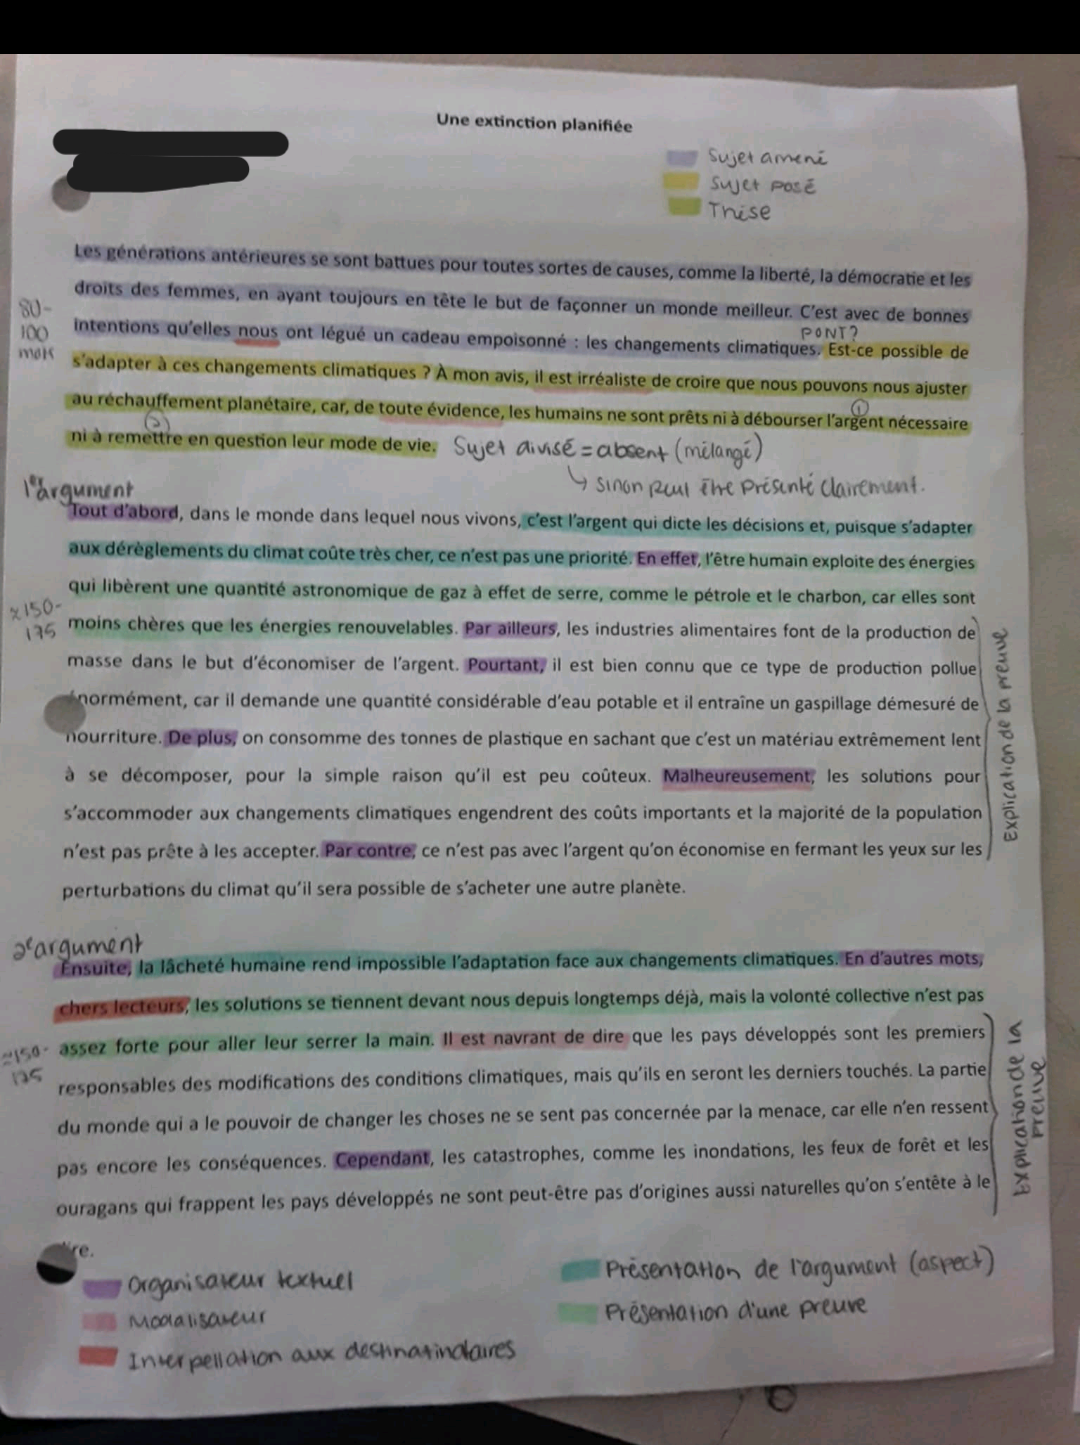 Une extinction planifiée
Sujet amené
Sujet posé
Thèse
Les générations antérieures se sont battues pour toutes sortes de causes, comme la liberté, la démocratie et les
droits des femmes, en ayant toujours en tête le but de façonner un monde meilleur. C'est avec de bonnes
80-
100
mots
intentions qu'elles nous ont légué un cadeau empoisonné : les changements climatiques. Est-ce possible de
PONT?
s'adapter à ces changements climatiques ? À mon avis, il est irréaliste de croire que nous pouvons nous ajuster
au réchauffement planétaire, car, de toute évidence, les humains ne sont prêts ni à débourser l'argent nécessaire
①
②
ni à remettre en question leur mode de vie. Sujet divisé = absent (mélangé)
↳ sinon peut être présenté clairement.
1er argument
Tout d'abord, dans le monde dans lequel nous vivons, c'est l'argent qui dicte les décisions et, puisque s'adapter
aux dérèglements du climat coûte très cher, ce n'est pas une priorité. En effet, l'être humain exploite des énergies
qui libèrent une quantité astronomique de gaz à effet de serre, comme le pétrole et le charbon, car elles sont
≈150-
175
moins chères que les énergies renouvelables. Par ailleurs, les industries alimentaires font de la production de
masse dans le but d'économiser de l'argent. Pourtant, il est bien connu que ce type de production pollue
énormément, car il demande une quantité considérable d'eau potable et il entraîne un gaspillage démesuré de
nourriture. De plus, on consomme des tonnes de plastique en sachant que c'est un matériau extrêmement lent
à se décomposer, pour la simple raison qu'il est peu coûteux. Malheureusement, les solutions pour
s'accommoder aux changements climatiques engendrent des coûts importants et la majorité de la population
n'est pas prête à les accepter. Par contre, ce n'est pas avec l'argent qu'on économise en fermant les yeux sur les
perturbations du climat qu'il sera possible de s'acheter une autre planète.
Explication de la preuve
2e argument
Ensuite, la lâcheté humaine rend impossible l'adaptation face aux changements climatiques. En d'autres mots,
chers lecteurs, les solutions se tiennent devant nous depuis longtemps déjà, mais la volonté collective n'est pas
≈150-
175
assez forte pour aller leur serrer la main. Il est navrant de dire que les pays développés sont les premiers
responsables des modifications des conditions climatiques, mais qu'ils en seront les derniers touchés. La partie
du monde qui a le pouvoir de changer les choses ne se sent pas concernée par la menace, car elle n'en ressent
pas encore les conséquences. Cependant, les catastrophes, comme les inondations, les feux de forêt et les
ouragans qui frappent les pays développés ne sont peut-être pas d'origines aussi naturelles qu'on s'entête à le
dire.
Explication de la
preuve
Organisateur textuel
Modalisateur
Interpellation aux destinatindaires
Présentation de l'argument (aspect)
Présentation d'une preuve